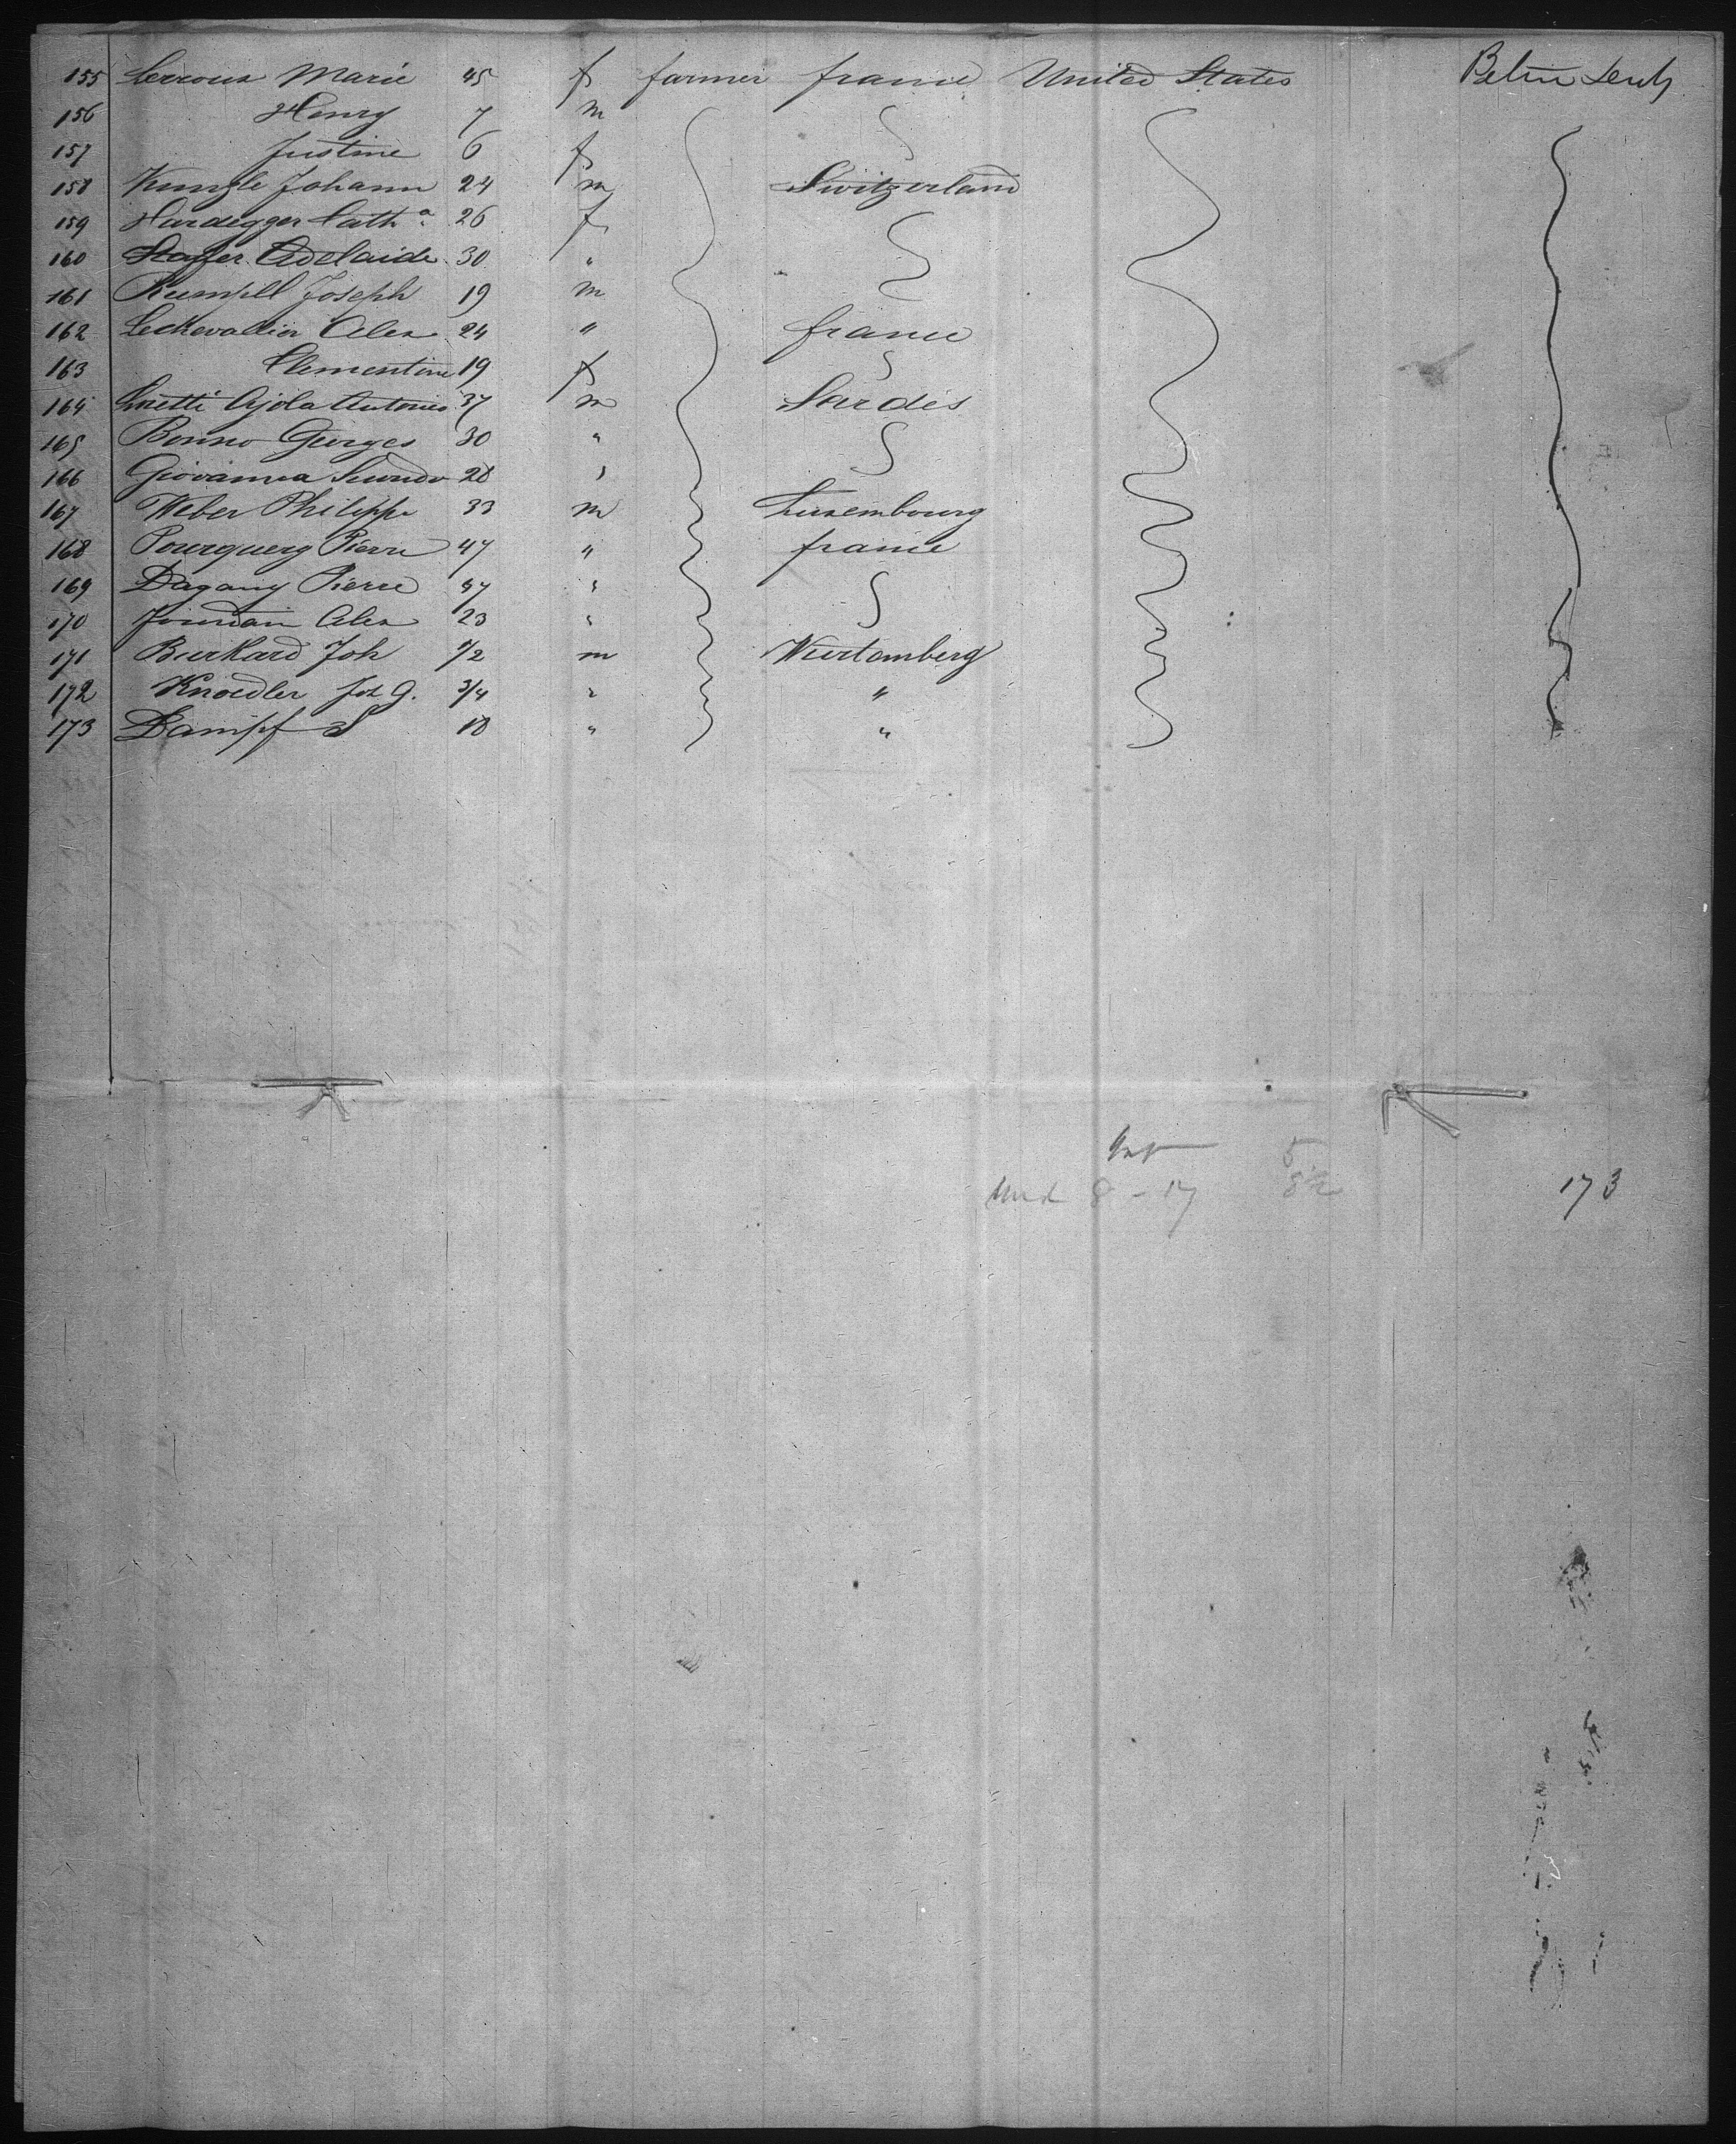 155 Lerroux Marie 45 f farmer france United States
156 Henry 7 m
157 Justine 6 f
158 Kungle Johann 24 m Switzerland
159 Hardegger Cath.a 26 f
160 Staffer Adelaide 30 "
161 Rumpll Joseph 19 m
162 Leckevallier Alex 24 " france
163 Clementine 19 f
164 Antonio 37 m Sardes
165 Bonno Georges 30 "
166 Giovanna 28 "
167 Weber Philippe 33 m Luxembourg
168 Pourquery Pierre 47 " france
169 Dagany Pierre 47 "
170 Jourdain Alex 23 "
171 Burkard Joh 1/2 m Wurtemberg
172 Knoedler Joh G. 3/4 " "
173 Dampf S 18 " "
8 - 17 173